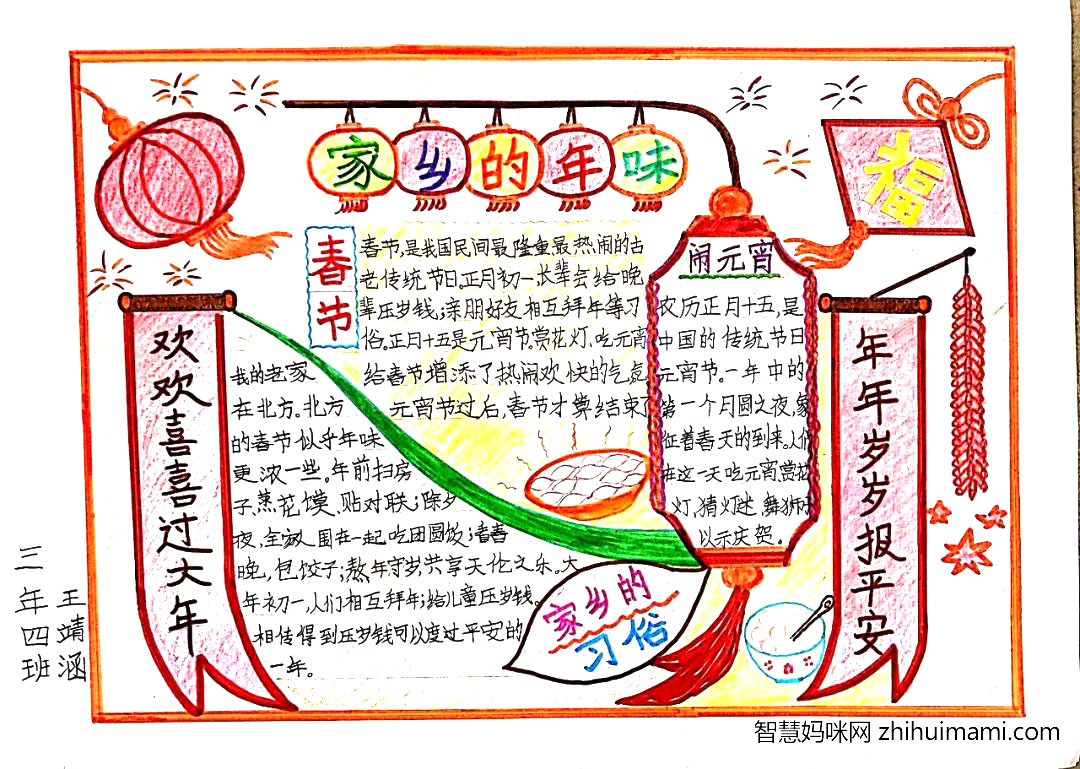 家乡的年味
福
春节
春节,是我国民间最隆重最热闹的古
老传统节日。正月初一长辈会给晚
辈压岁钱;亲朋好友相互拜年等习
俗。正月十五是元宵节赏花灯、吃元宵
给春节增添了热闹欢快的气氛
元宵节过后,春节才算结束了
闹元宵
农历正月十五,是
中国的传统节日
元宵节。一年中的
第一个月圆之夜,象
征着春天的到来。人们
在这一天吃元宵赏花
灯,猜灯迷,舞狮
以示庆贺。
欢欢喜喜过大年
年年岁岁报平安
我的老家
在北方。北方
的春节似乎年味
更浓一些。年前扫房
子、蒸花馍、贴对联;除夕
夜,全家人围在一起吃团圆饭;春
晚,包饺子;熬年守岁共享天伦之乐。大
年初一,人们相互拜年;给儿童压岁钱。
相传得到压岁钱可以度过平安的
一年。
家乡的
习俗
三年四班
王靖涵
智慧妈咪网 zhihuimami.com